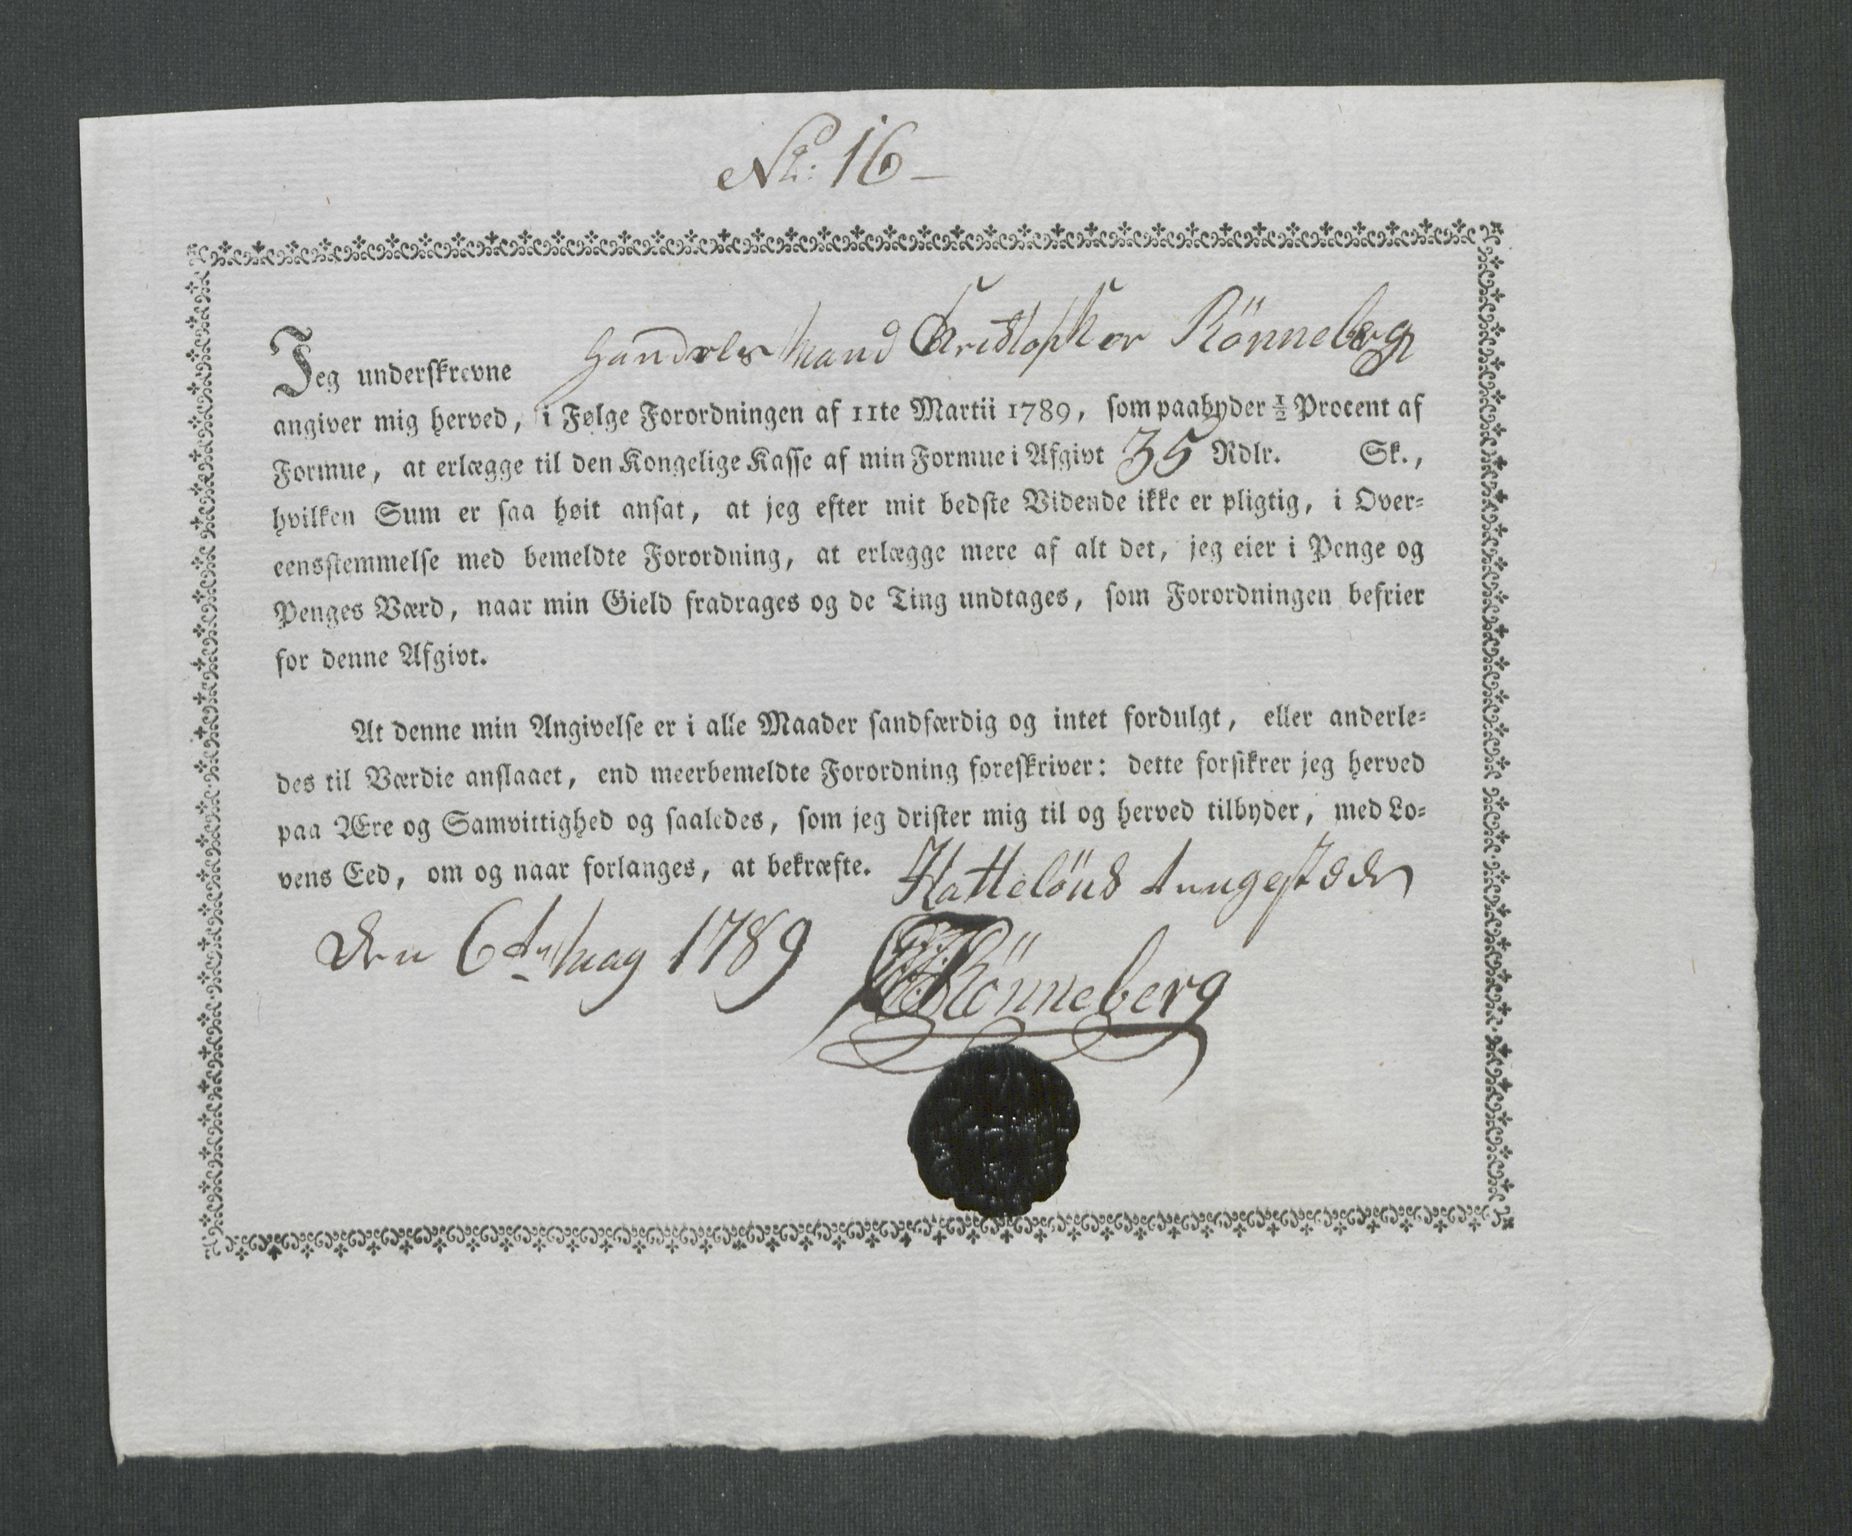 No: 16
Jeg underskrevne Handelsmand Cristopher Rönneberg
angiver mig herved, i Følge Forordningen af 11te Martii 1789, som paabyder ½ Procent af
Formue, at erlægge til den Kongelige Kasse af min Formue i Afgivt 35 Rdlr. Sk.,
hvilken Sum er saa høit ansat, at jeg efter mit bedste Vidende ikke er pligtig, i Over=
eensstemmelse med bemeldte Forordning, at erlægge mere af alt det, jeg eier i Penge og
Penges Værd, naar min Gield fradrages og de Ting undtages, som Forordningen befrier
for denne Afgivt.
At denne min Angivelse er i alle Maader sandfærdig og intet fordulgt, eller anderle=
des til Værdie anslaaet, end meerbemeldte Forordning foreskriver: dette forsikrer jeg herved
paa Ære og Samvittighed og saaledes, som jeg drister mig til og herved tilbyder, med Lo=
vens Eed, om og naar forlanges, at bekræfte.
den 6te May 1789
Rönneberg